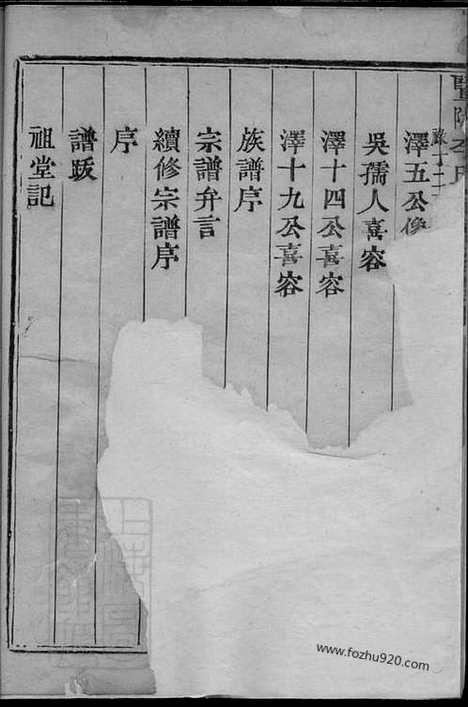 暨陽李氏
澤五公像
吳孺人喜容
澤十四公喜容
澤十九公喜容
族譜序
宗譜弁言
續修宗譜序
序
譜跋
祖堂記
www.fozhu920.com